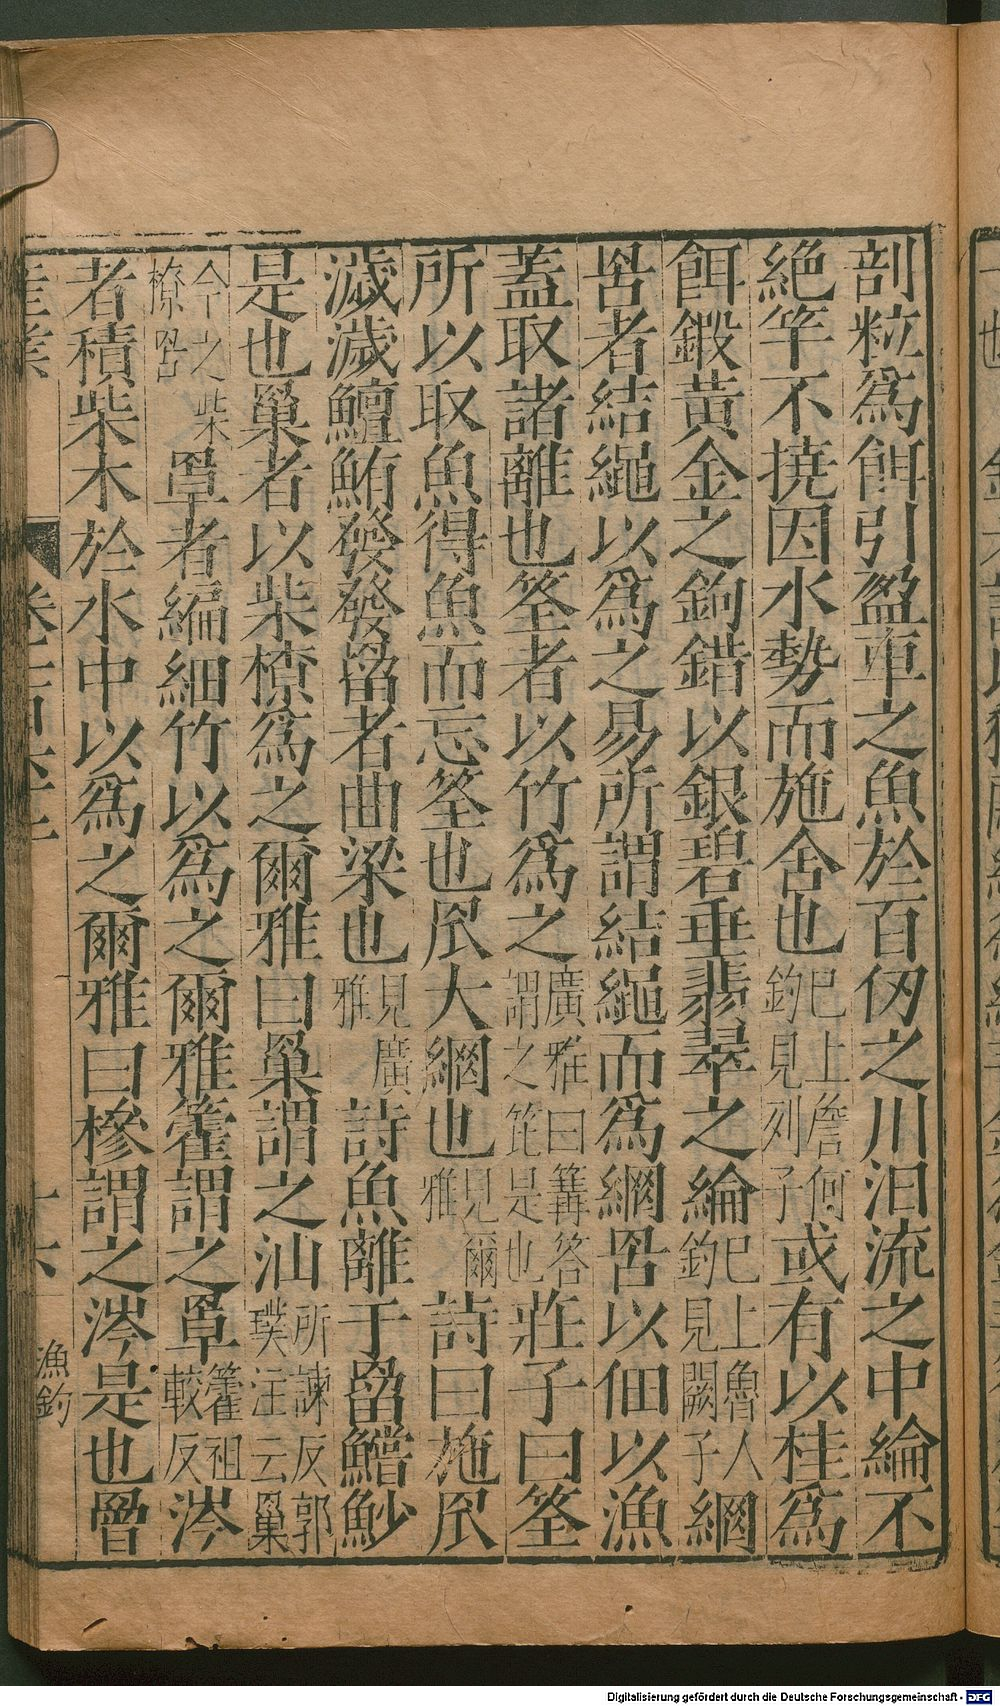 剖粒爲餌引盈車之魚於百仞之川汩流之中綸不
絶竿不撓因水勢而施舍也巳上詹何釣見列子或有以桂爲
餌鍛黃金之鉤錯以銀碧垂翡翠之綸巳上魯人釣見闕子網
罟者結繩以爲之易所謂結繩而爲網罟以佃以漁
蓋取諸離也筌者以竹爲之廣雅曰篝笿謂之笓是也莊子曰筌
所以取魚得魚而忘筌也罛大網也見爾雅詩曰施罛
濊濊鱣鮪發發罶者曲梁也見廣雅詩魚離于罶鱨魦
是也巢者以柴橑爲之爾雅曰巢謂之汕所諫反郭璞注云巢
今之柴橑罟罩者編細竹以爲之爾雅籗謂之罩籗祖較反涔
者積柴木於水中以爲之爾雅曰槮謂之涔是也罾
産業
漁釣
Digitalisierung gefördert durch die Deutsche Forschungsgemeinschaft - DFG